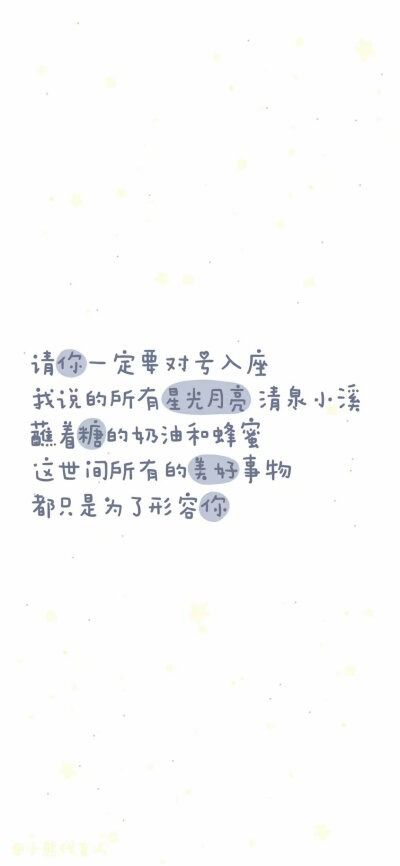 请你一定要对号入座
我说的所有星光月亮 清泉小溪
蘸着糖的奶油和蜂蜜
这世间所有的美好事物
都只是为了形容你